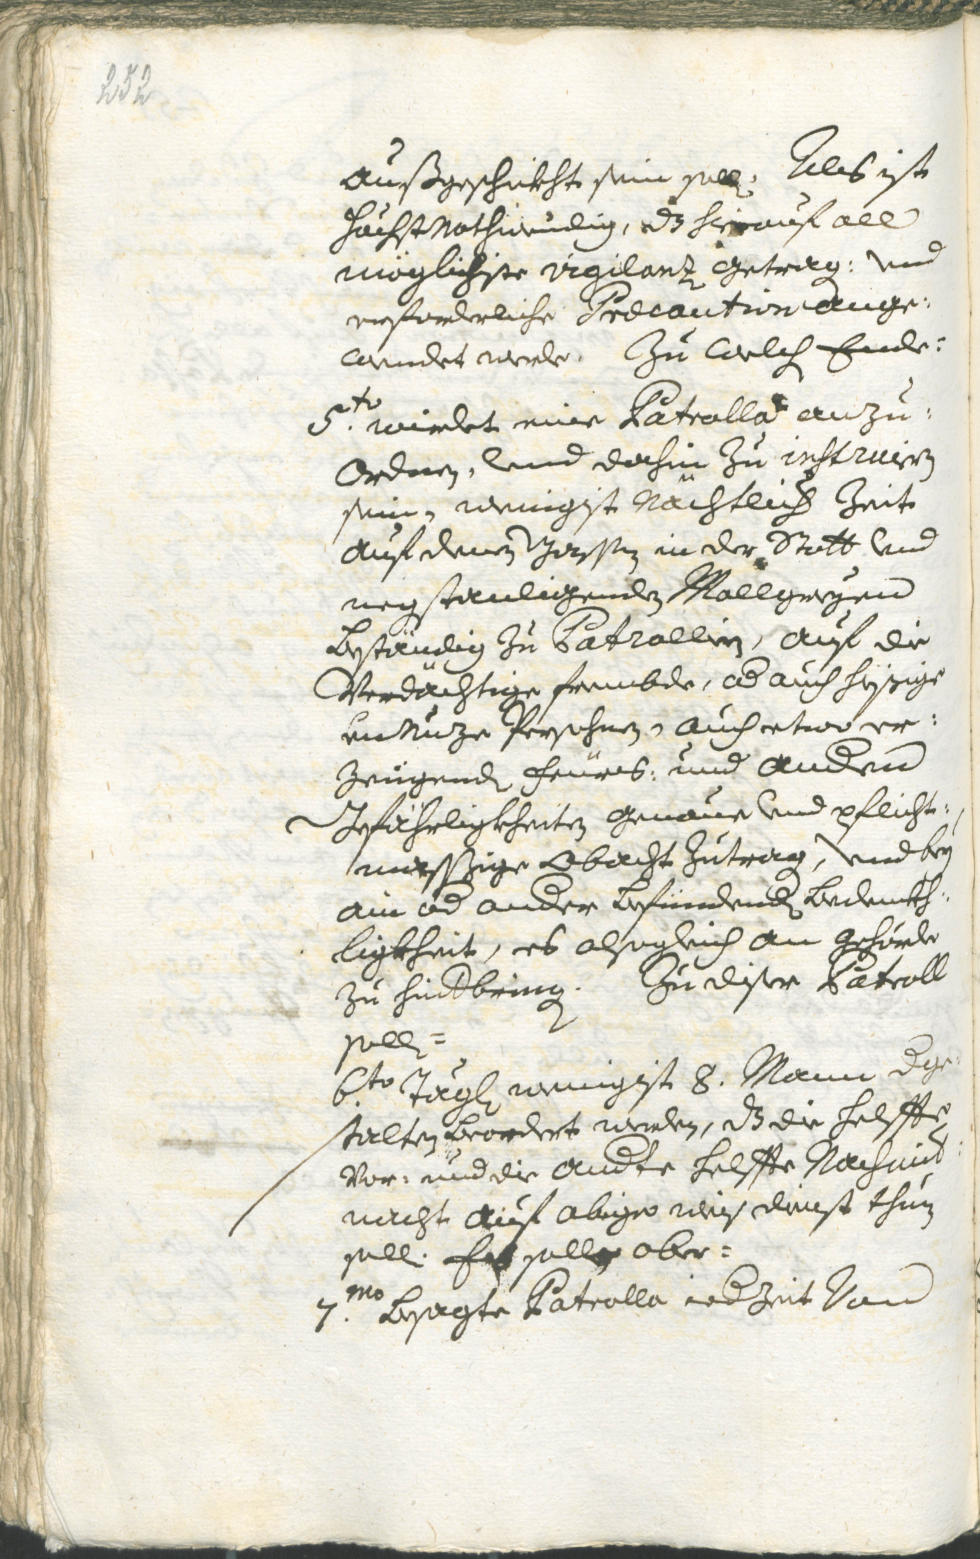 252
außgeschickht sein soll. Alß ist
höchst Nothwendig, dz hierauf all
möglichste vigilanz getrag: und
erforderliche Præcaution ange:
wendet werde. Zu welch Ende:
5.to wirdet eine Patrolla anzu:
ordnen, und dahin zu instruiern
sein, wenigist Nächtlich Zeit
auf denen Gassen in der Statt und
negstanligenden
beständig zu Patrolliern, auf die
Verdächtige frembde, od auch hiesige
unnuze Persohnen, auch etwo er:
zeugend feürs: und andern
Gefährligkheiten genaue und pflicht:
messige Obacht zutrag, und bey
ain od ander befindend bedenkh:
ligkheit, es alsogleich an gehörde
zu hinterbring. Zu diser Patroll
soll=
6.to Tägl wenigist 8. Mann dge:
stalten beordert werden, dz die helffte
vor: und die andte helffte Nachmit:
nacht auf obige weis dienst thun
soll. Es soll aber=
7.mo besagte Patrolla iedzeit Von